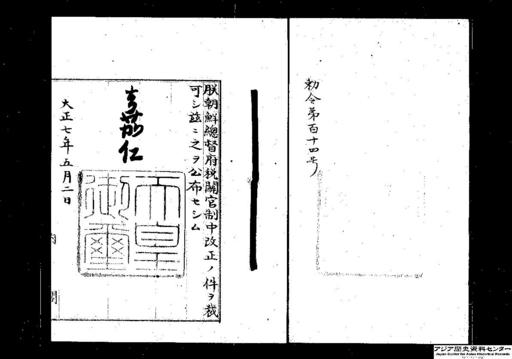 勅令第百十四号
朕朝鮮總督府税關官制中改正ノ件ヲ裁
可シ茲ニ之ヲ公布セシム
嘉仁
天皇
御璽
大正七年五月二日
アジア歴史資料センター
Japan Center for Asian Historical Records